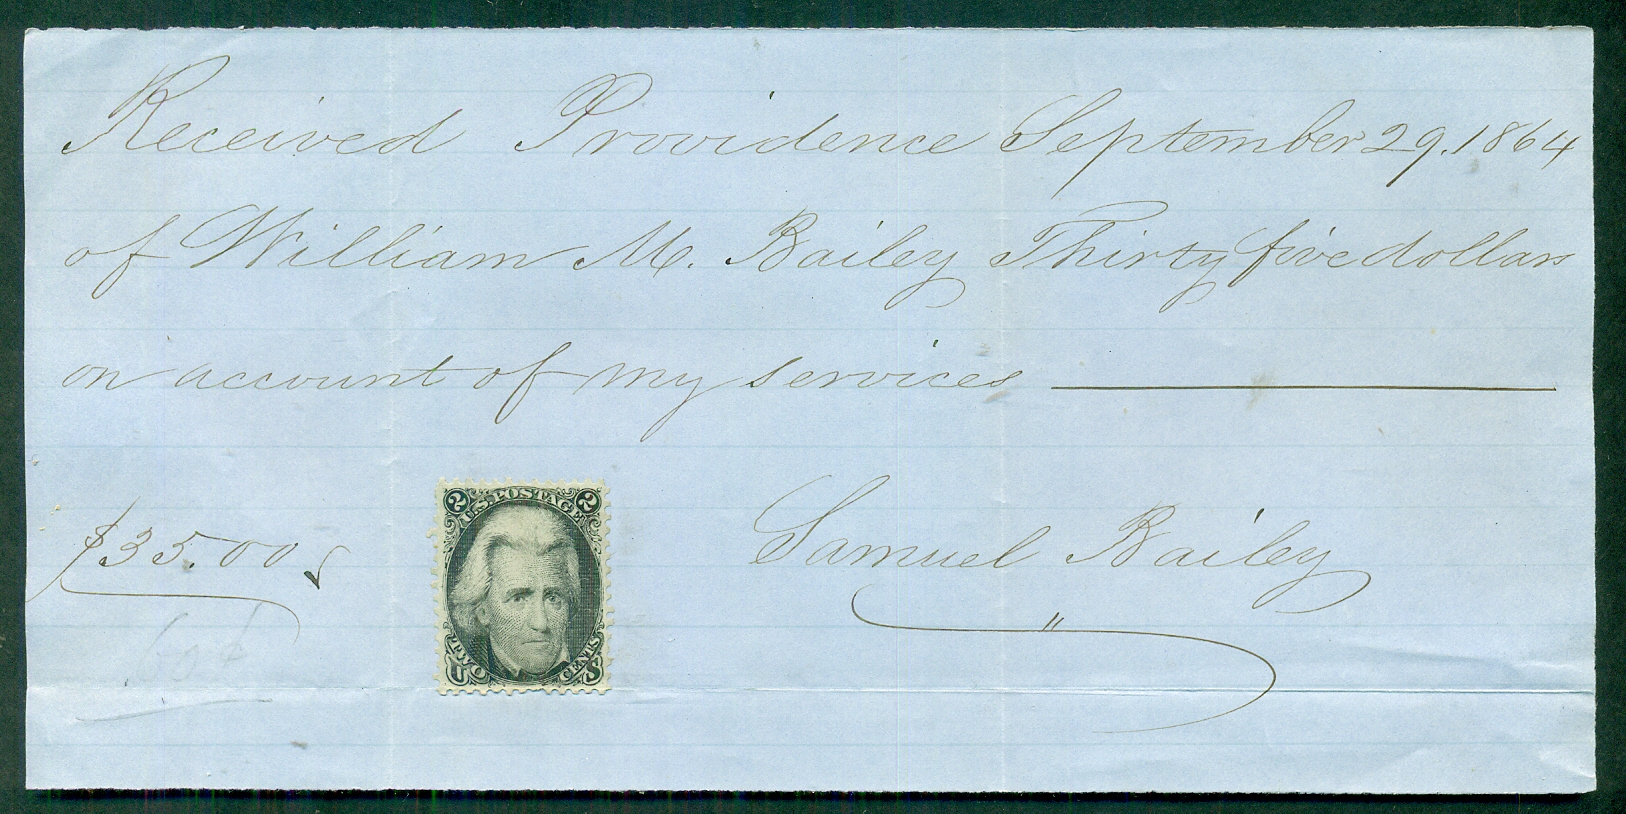 Received Providence September 29. 1864
of William M. Bailey Thirty five dollars
on account of my services
$35.00
2 U.S. POSTAGE 2
TWO CENTS
U S
Samuel Bailey